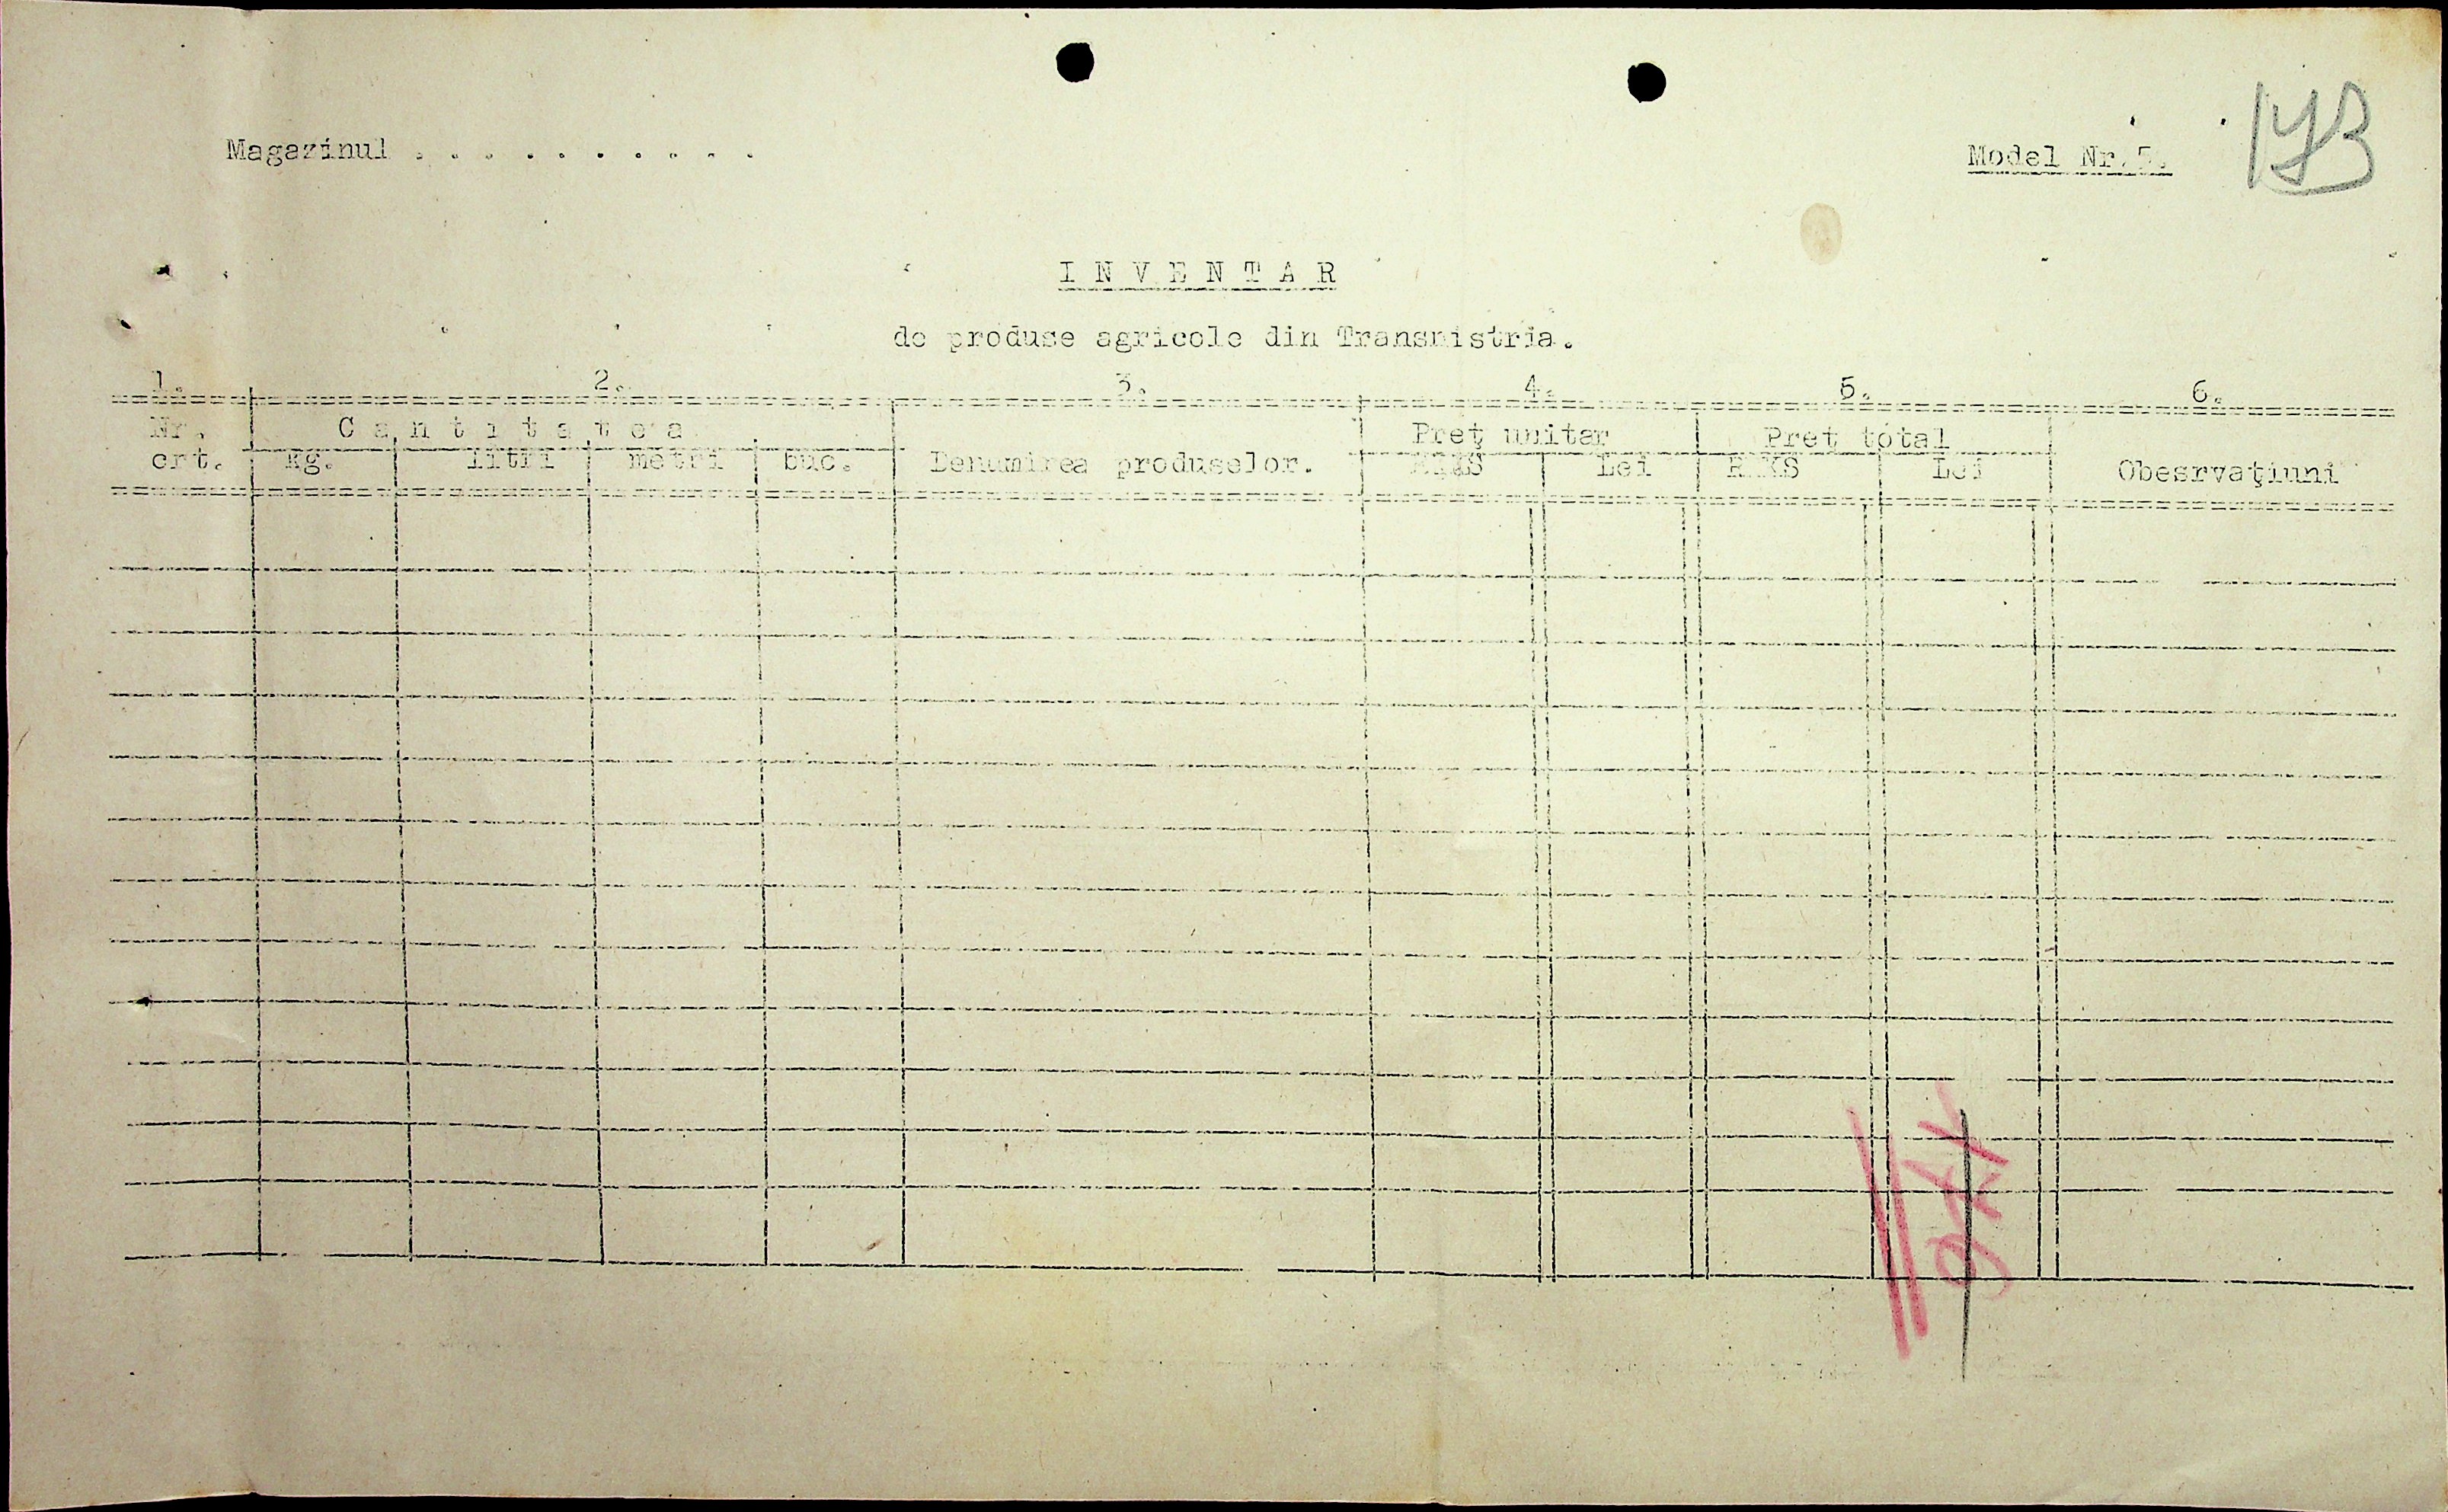 173
Magazinul . . . . . . . . . . .
Model Nr.5.
I N V E N T A R
de produse agricole din Transnistria.
1. 2. 3. 4. 5. 6.
Nr. C a n t i t a t e a Preţ unitar Preţ total
crt. Kg. litri metri buc. Denumirea produselor. RKKS Lei RKKS Lei Obesrvaţiuni